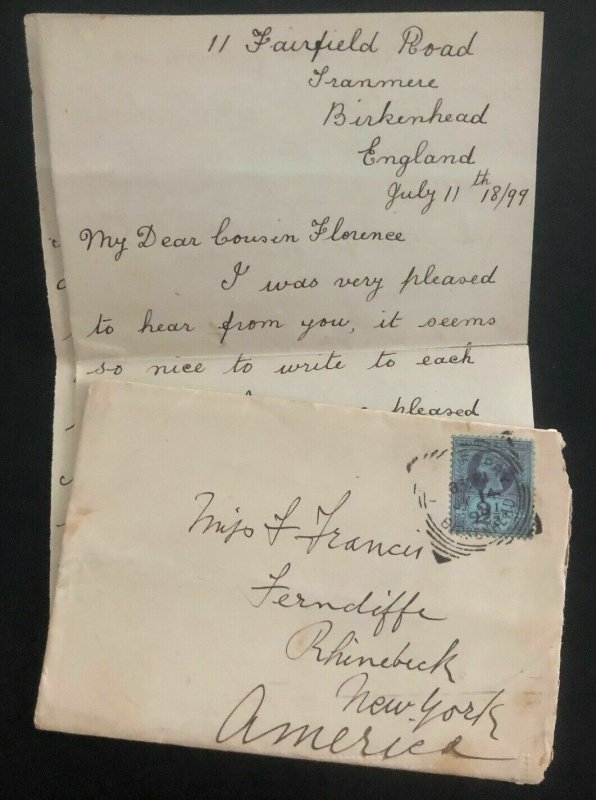 11 Fairfield Road
Tranmere
Birkenhead
England
July 11th 18/99
My Dear Cousin Florence
I was very pleased
to hear from you, it seems
so nice to write to each
pleased
Miss F Francis
Ferncliffe
Rhinebeck
New-York
America
2½